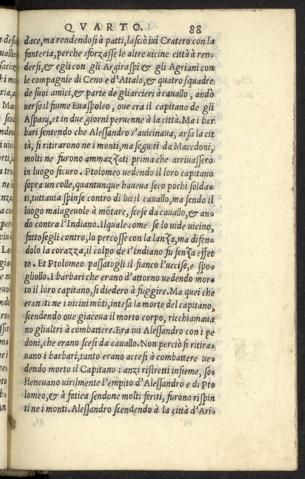 QVARTO. 88
dace, ma rendendosi à patti, lasciò iui Cratero con la
fanteria, perche sforzasse le altre uicine città à ren
dersi, & egli con gli Argiraspi & gli Agriani con
le compagnie di Ceno e d'Attalo, & quattro squadre
de suoi amici, & parte de gli arcieri à cauallo, andò
uerso il fiume Euaspoleo, oue era il capitano de gli
Aspasij, et in due giorni peruenne à la città. Ma i bar
bari sentendo che Alessandro s'auicinaua, arsa la cit
tà, si ritirarono ne i monti, ma seguiti da Macedoni,
molti ne furono ammazzati prima che arriuassero
in luogo sicuro. Ptolomeo uedendo il loro capitano
sopra un colle, quantunque haueua seco pochi solda-
ti, tuttauia spinse contro di lui il cauallo, ma sendo il
luogo malageuole à mōtare, scese da cauallo, & an-
dò contra l'Indiano. Il quale come se lo uide uicino,
fattosegli contro, lo percosse con la lanza, ma difen-
dolo la corazza, il colpo de l'Indiano fu senza effet
to. Et Ptolomeo passatogli il fianco l'uccise, e spo-
gliollo. I barbari che erano d'attorno uedendo mor-
to il loro capitano, si diedero à fuggire. Ma quei che
eran iti ne i uicini mōti, intesa la morte del capitano,
scendendo oue giaceua il morto corpo, richiamaua
no gli altri à combattere. Era iui Alessandro con i pe
doni, che erano scesi da cauallo. Non perciò si ritira-
uano i barbari, tanto erano accesi à combattere ue-
dendo morto il Capitano: anzi ristretti insieme, so-
steneuano uirilmente l'empito d'Alessandro e di Pto
lomeo, & à fatica sendone molti feriti, furono rispin
ti ne i monti. Alessandro scendendo à la città d'Aris